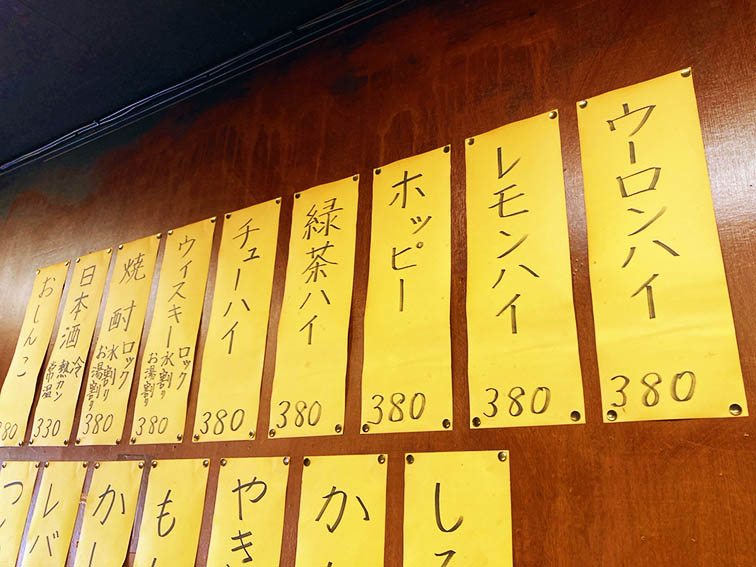 ウーロンハイ
380
レモンハイ
380
ホッピー
380
緑茶ハイ
380
チューハイ
380
ウィスキー
ロック
水割り
お湯割り
380
焼酎
ロック
水割り
お湯割り
380
日本酒
冷
熱カン
常温
330
おしんこ
380
し
か
やき
も
か
レバ
つ